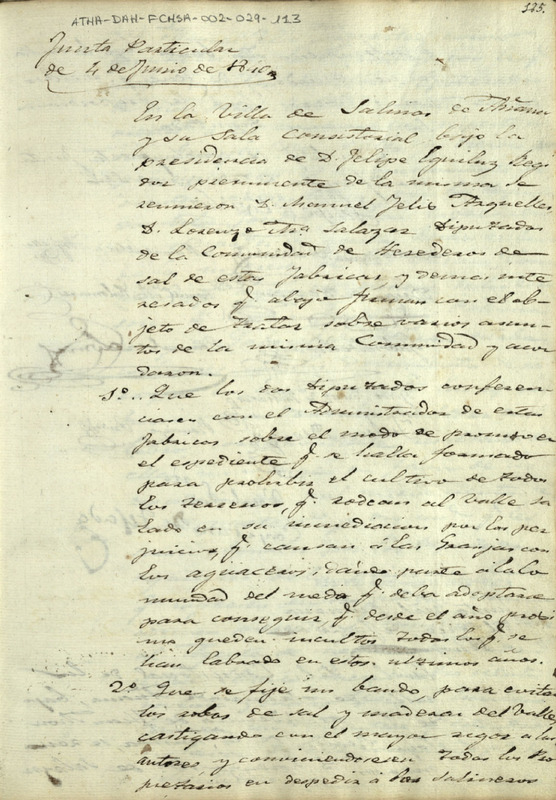 125.
ATHA-DAH-FCHSA-002-029-113
Junta Particular
de 4 de Junio de
En la Villa de Salinas de Añana
y su Sala Consistorial bajo la
presidencia de D. Felipe Eguiluz Regi
dor preeminente de la misma se
reunieron D. Manuel Felix
D. Lorenzo Salazar Diputados
de la Comunidad de Herederos de
sal de estas fabricas y demas inte
resados q.e abajo firman con el ob-
jeto de tratar sobre varios asun-
tos de la misma Comunidad y acor
daron.
1.º.. Que los dos Diputados conferen
ciasen con el Administrador de estas
fabricas sobre el modo de promover
el espediente q.e se halla formado
para prohibir el cultivo de todos
los terrenos, q.e rodean al Valle sa
lado en su inmediacion por los per
juicios, q.e causan á las Granjas con
los aguaceros, parte á la Co
munidad del medio q.e deba adoptarse
para conseguir q.e desde el año proxi
mo queden incultos todos los q.e se
han labrado en estos ultimos años.
2.º Que se fije un bando, para evitar
los robos de sal y maderas del Valle,
castigando con el mayor rigor a los
autores, y conviniendose todos los Pro
pietarios en despedir á los salineros